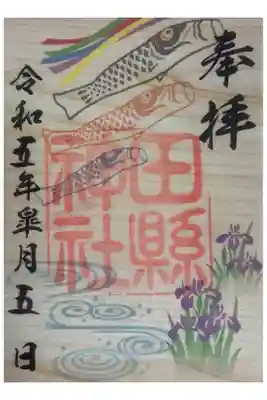 奉拝
田縣
神社
令和五年皐月五日